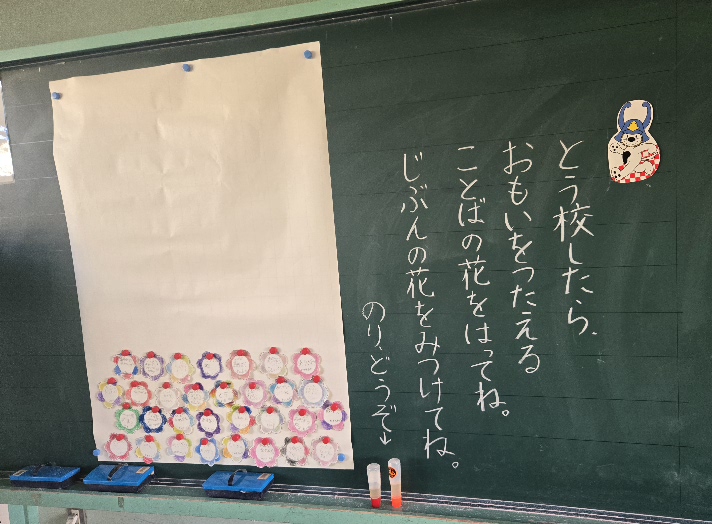 とう校したら、
おもいをつたえる
ことばの花をはってね。
じぶんの花をみつけてね。
のり、どうぞ↓